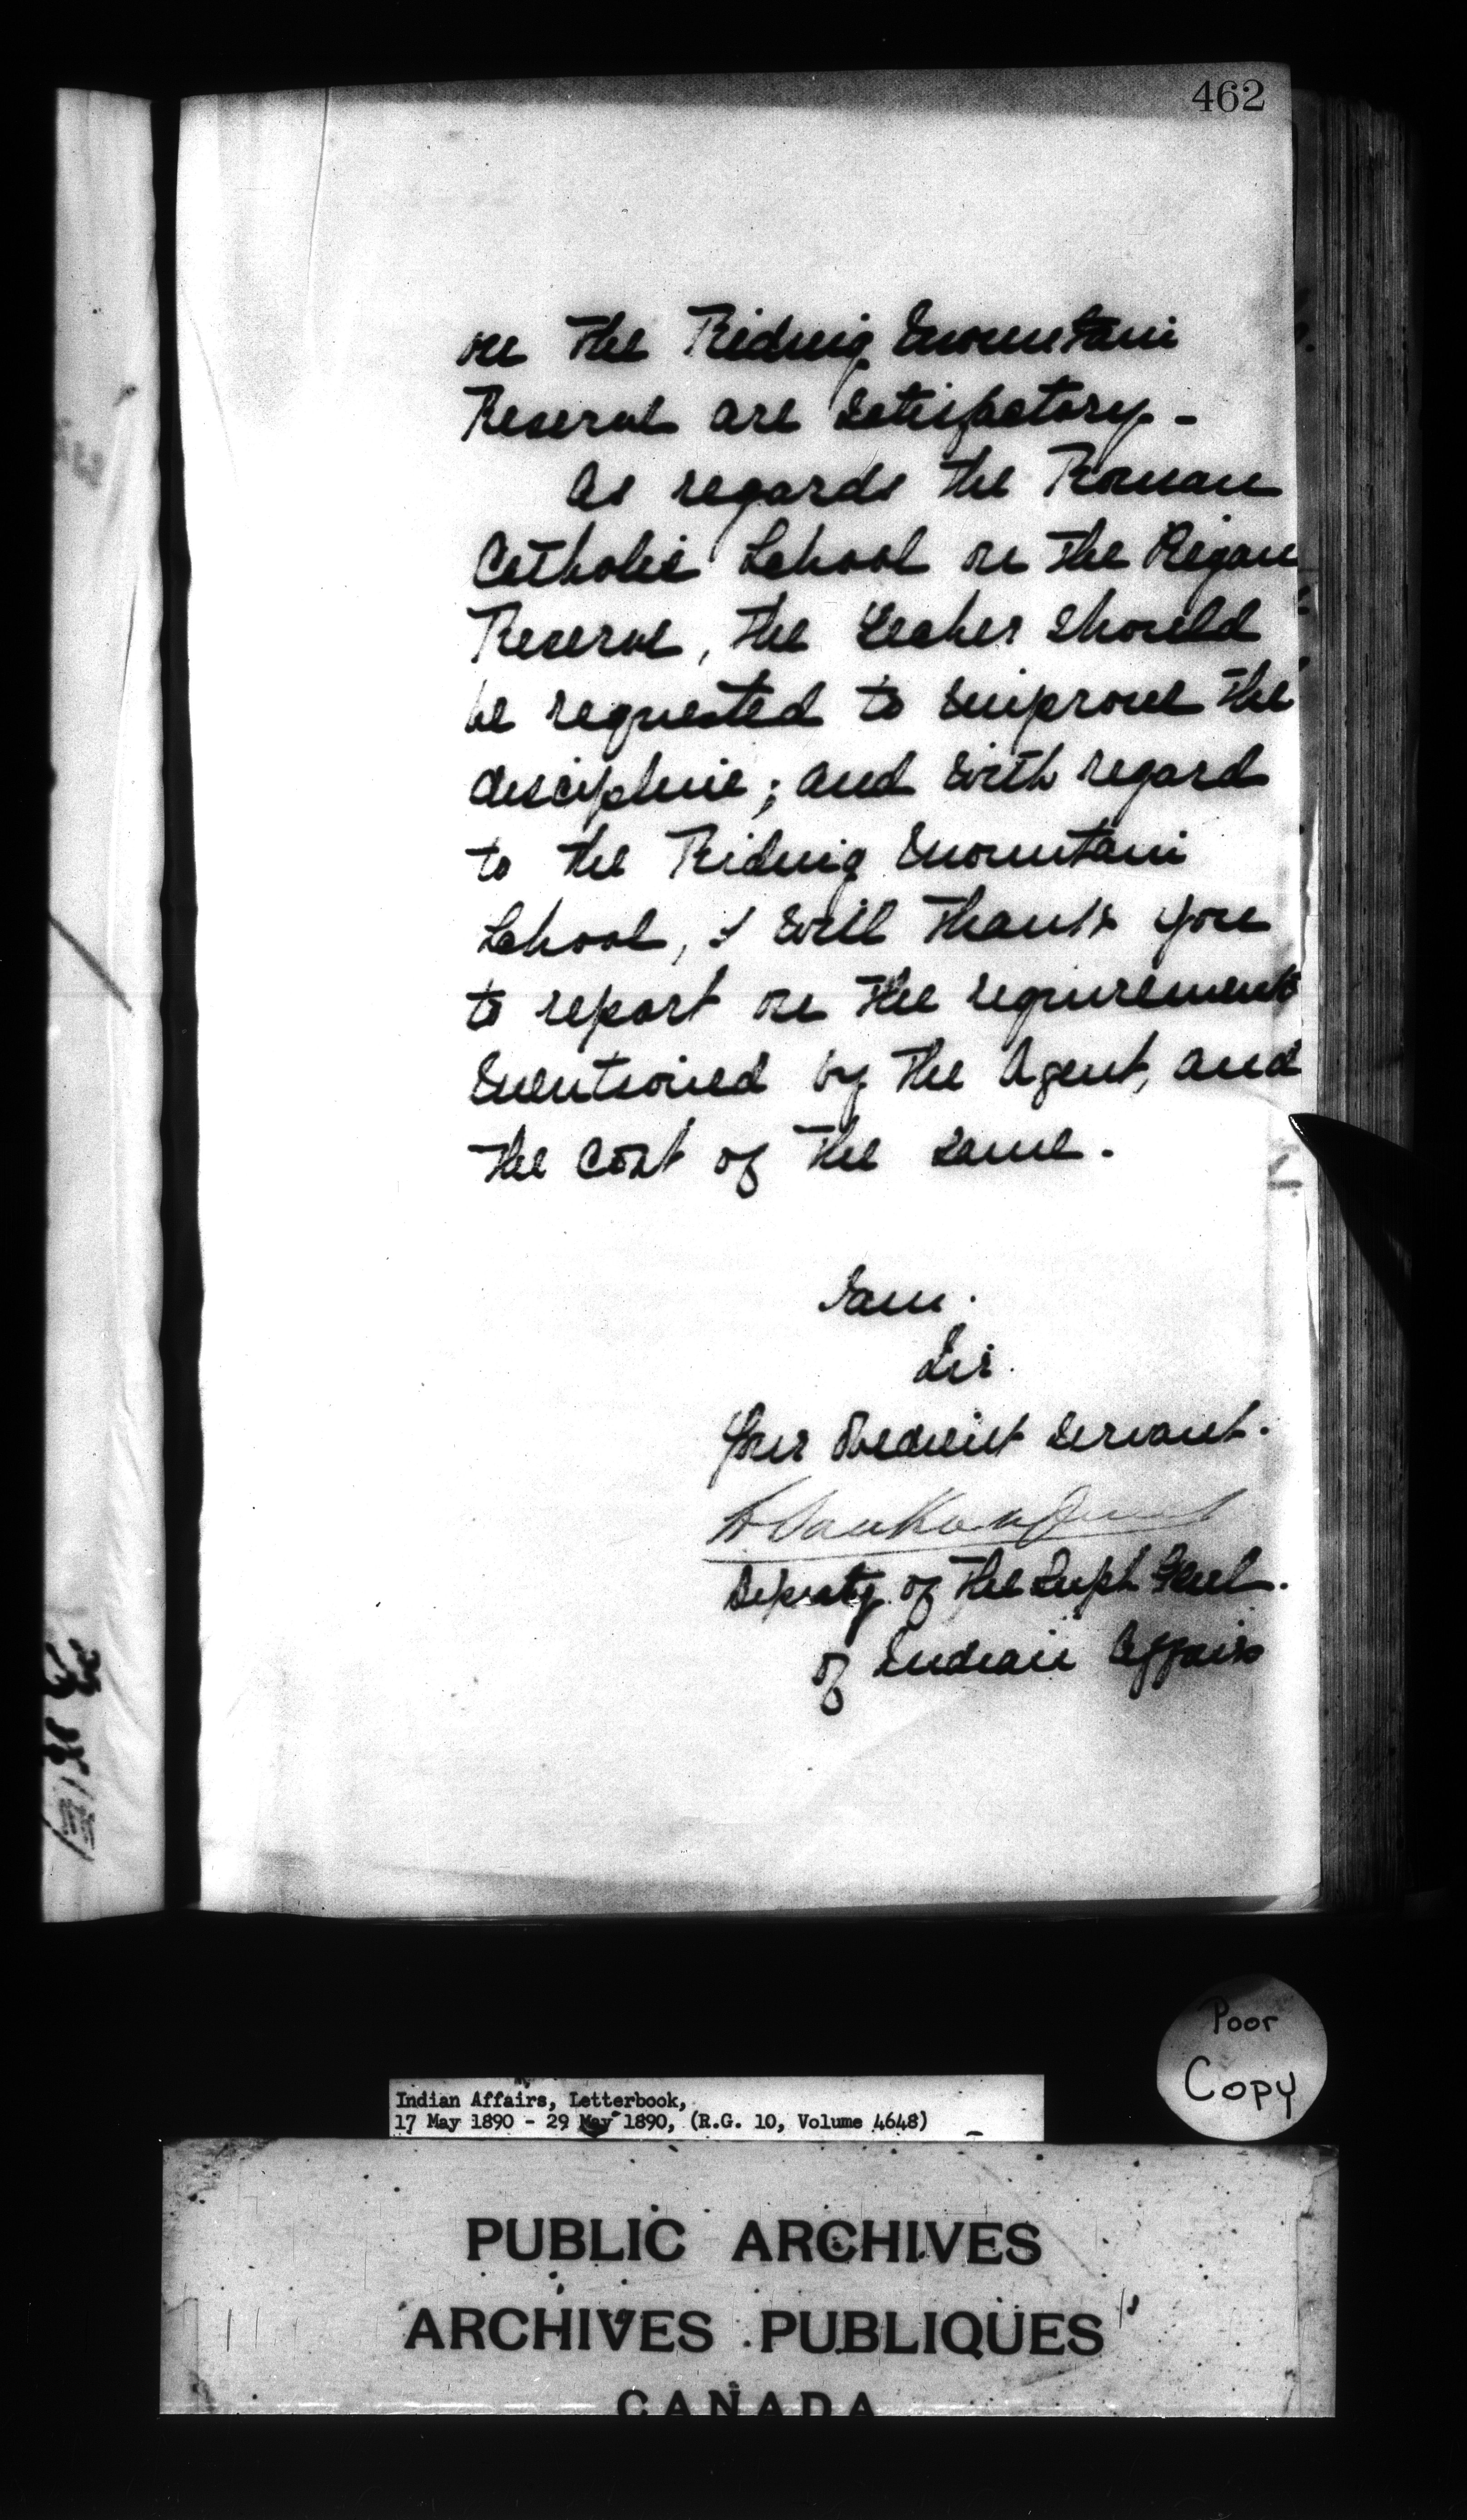 462
on the Riding Mountain
Reserve are satisfactory -
As regards the Roman
Catholic School on the
Reserve, the Teacher should
be requested to improve the
discipline; and with regard
to the Riding Mountain
School, I will thank you
to report on the requirements
mentioned by the Agent, and
the cost of the same.
I am.
Sir.
Your obedient servant.
L VanKoughnet
Deputy of the Supt Genl.
of Indian Affairs
Poor
Copy
Indian Affairs, Letterbook,
17 May 1890 - 29 May 1890, (R.G. 10, Volume 4648)
PUBLIC ARCHIVES
ARCHIVES PUBLIQUES
CANADA